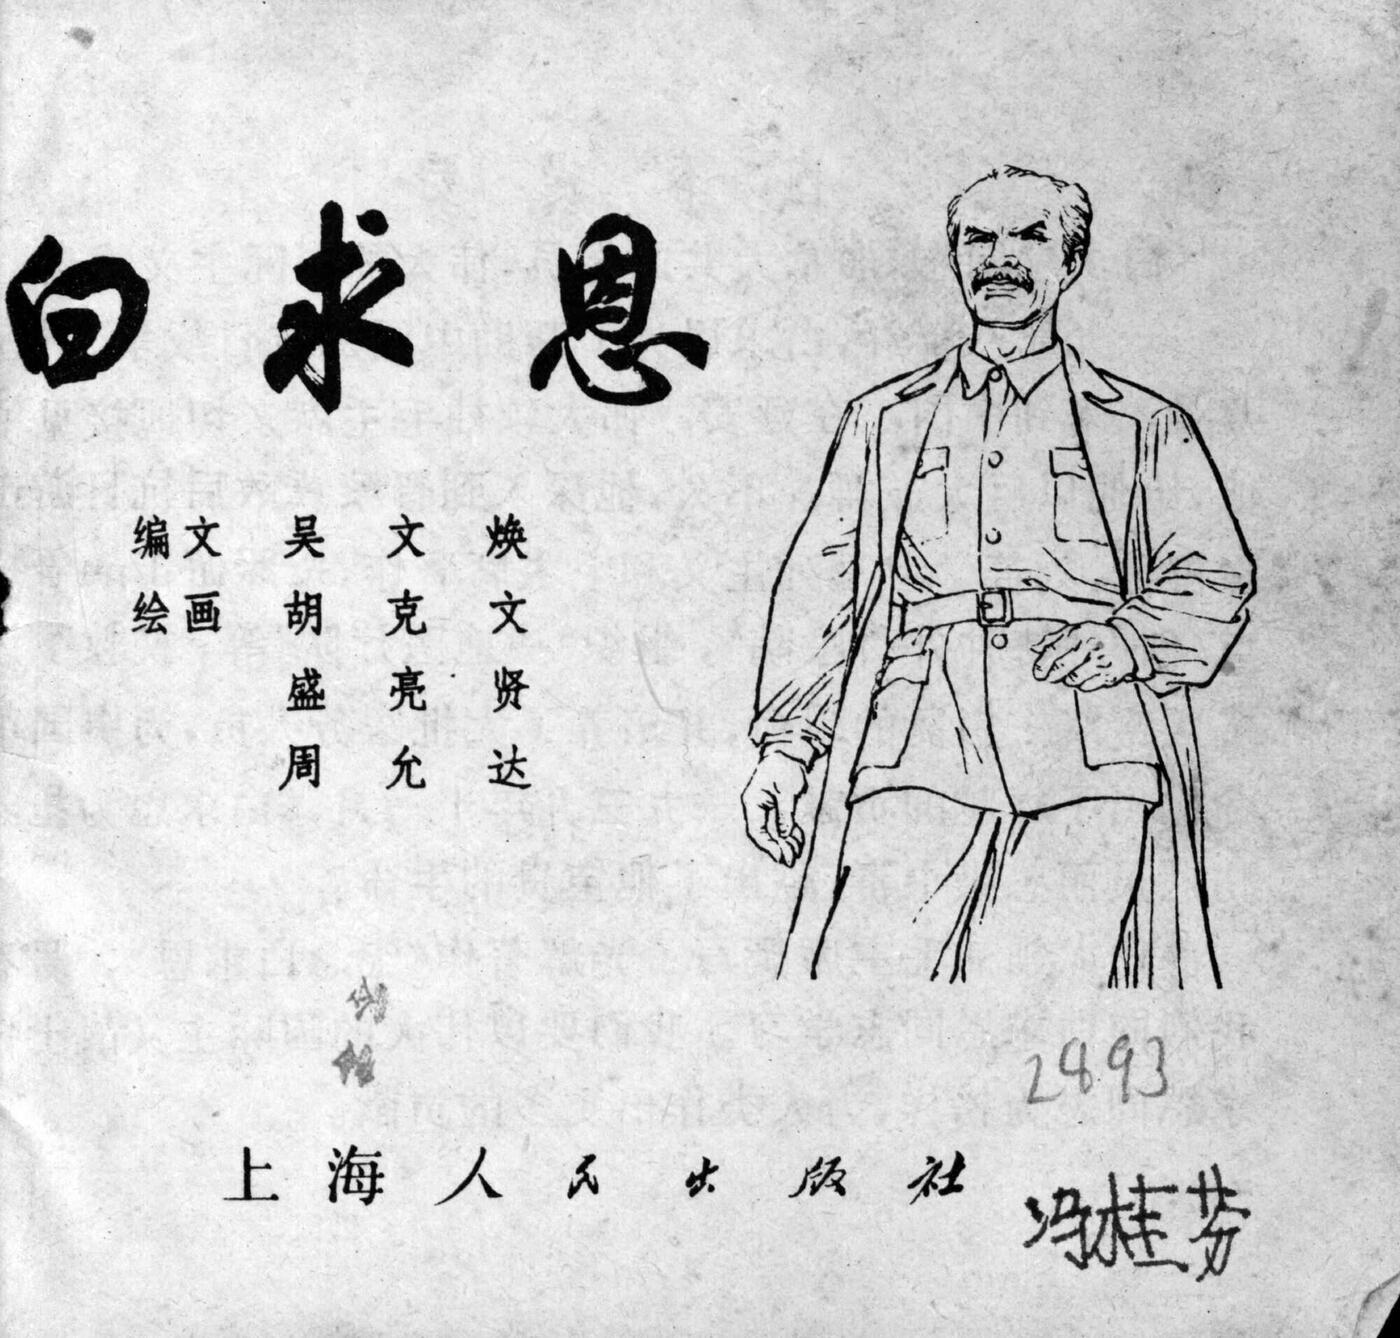 白求恩
编文 吴文焕
绘画 胡克文
盛亮贤
周允达
2893
上海人民出版社
冯桂芬